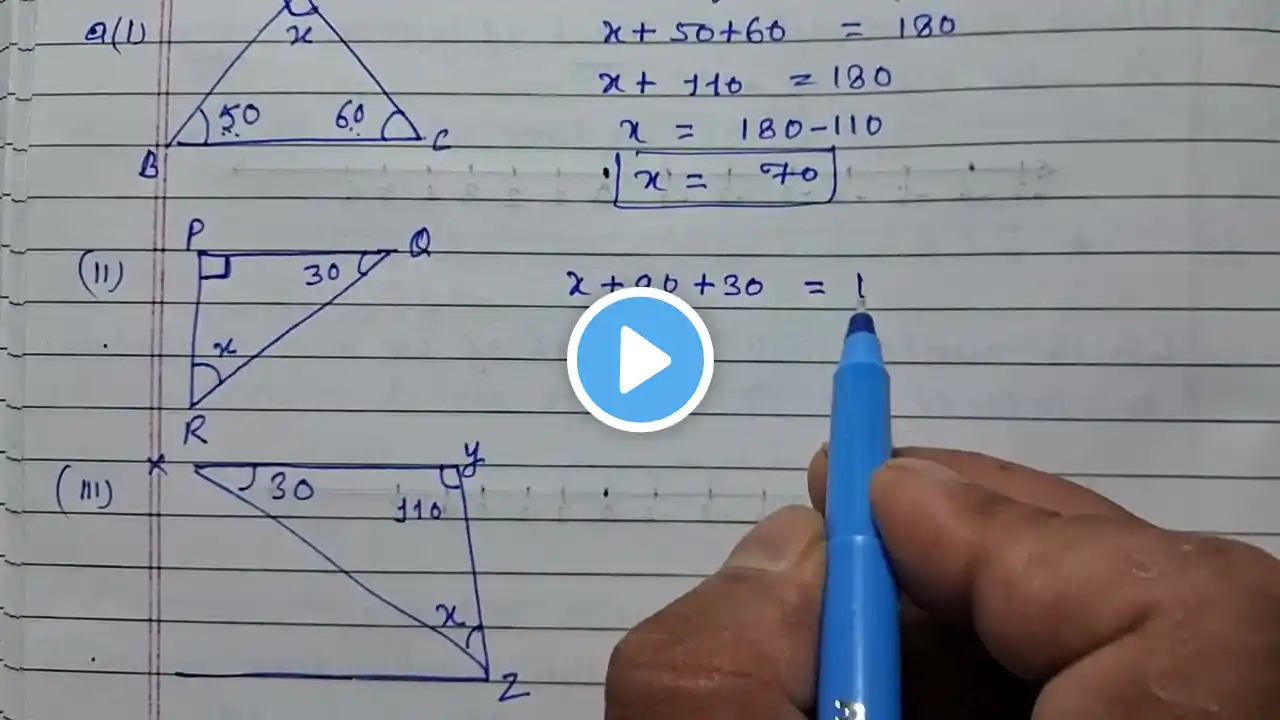 Q(I)
x
50
60
B
C
x + 50 + 60 = 180
x + 110 = 180
x = 180 - 110
x = 70
(II)
P
Q
30
x
R
x + 90 + 30 = 1
(III)
x
y
30
110
x
Z